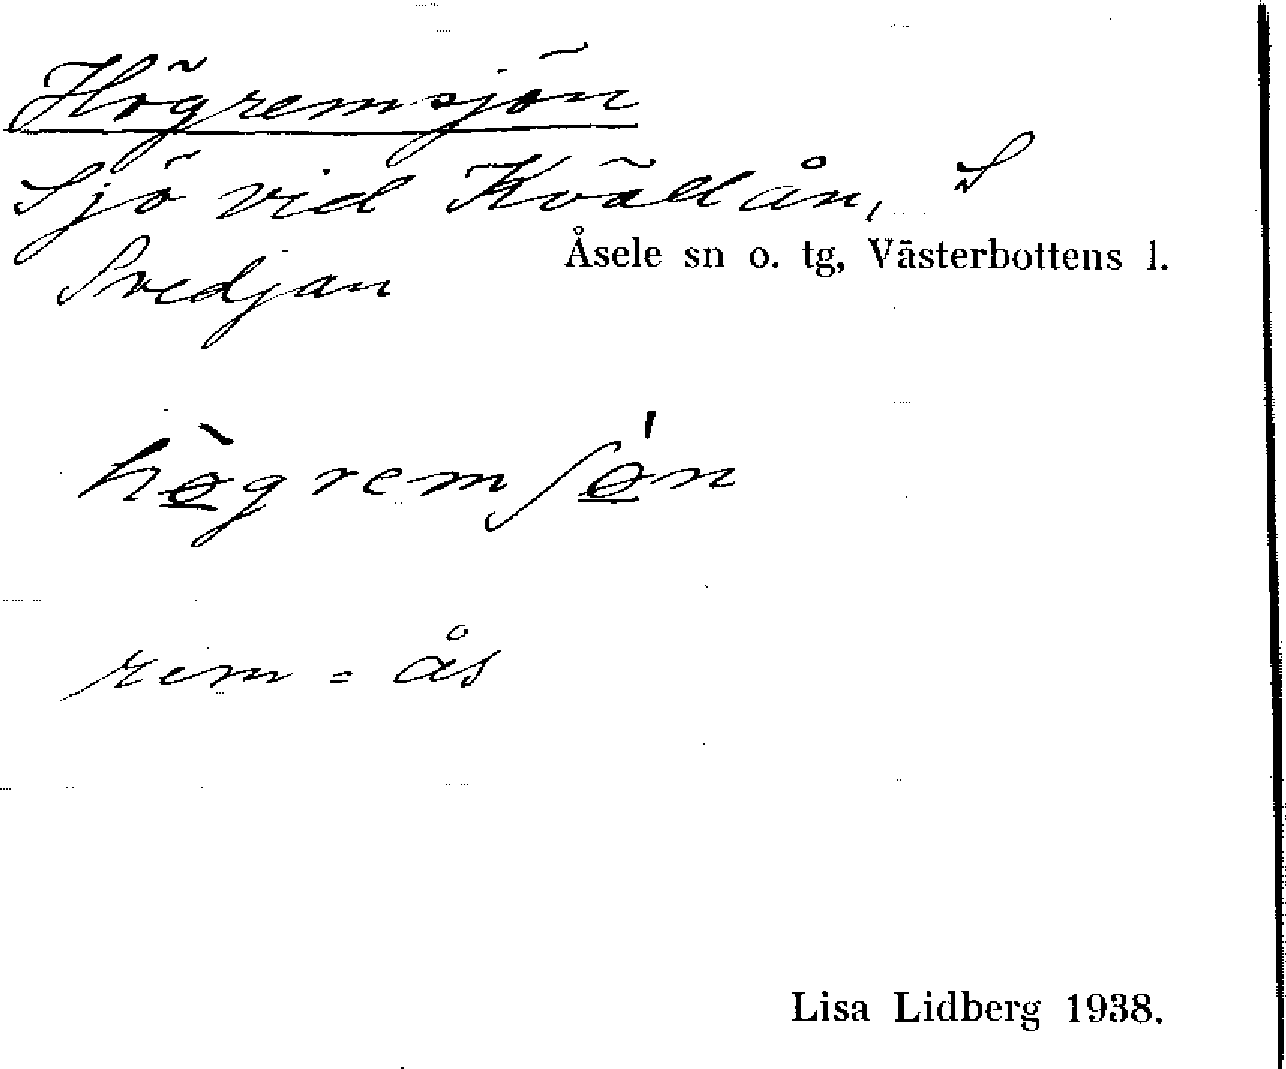 Högremsjön
Sjö vid Kvällån, S
Svedjan
Åsele sn o. tg, Västerbottens l.
hø̀gremʃǿn
rem = ås
Lisa Lidberg 1938.